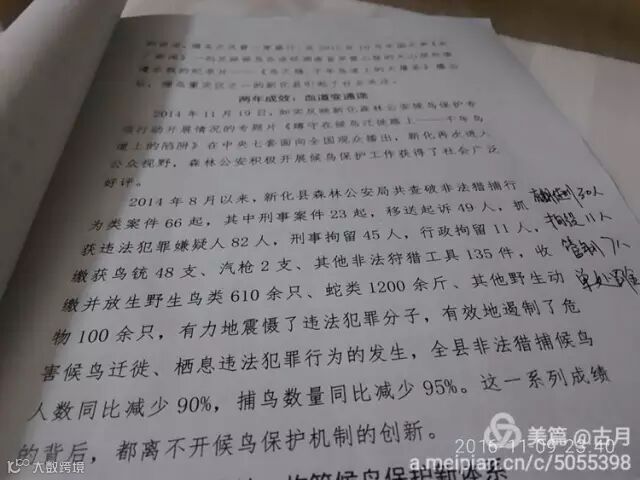 两年成效：血道变通途
2014年11月19日，如实反映新化森林公安候鸟保护专
项行动开展情况的专题片《蹲守在候鸟迁徙路上——千年鸟
道上的陷阱》在中央七套面向全国观众播出，新化再次进入
公众视野，森林公安积极开展候鸟保护工作获得了社会广泛
好评。
2014年8月以来，新化县森林公安局共查破非法猎捕行
为类案件66起，其中刑事案件23起，移送起诉49人，抓
获违法犯罪嫌疑人82人，刑事拘留45人，行政拘留11人，
缴获鸟铳48支、汽枪2支、其他非法狩猎工具135件，收
缴并放生野生鸟类610余只、蛇类1200余斤、其他野生动
物100余只，有力地震慑了违法犯罪分子，有效地遏制了危
害候鸟迁徙、栖息违法犯罪行为的发生，全县非法猎捕候鸟
人数同比减少90%，捕鸟数量同比减少95%。这一系列成绩
的背后，都离不开候鸟保护机制的创新。
候鸟保护新体系
30人
拘役11人
管制7人
单处罚金
2016-11-09 23:40
美篇 @古月
a.meipian.cn/c/5055398
大数跨境